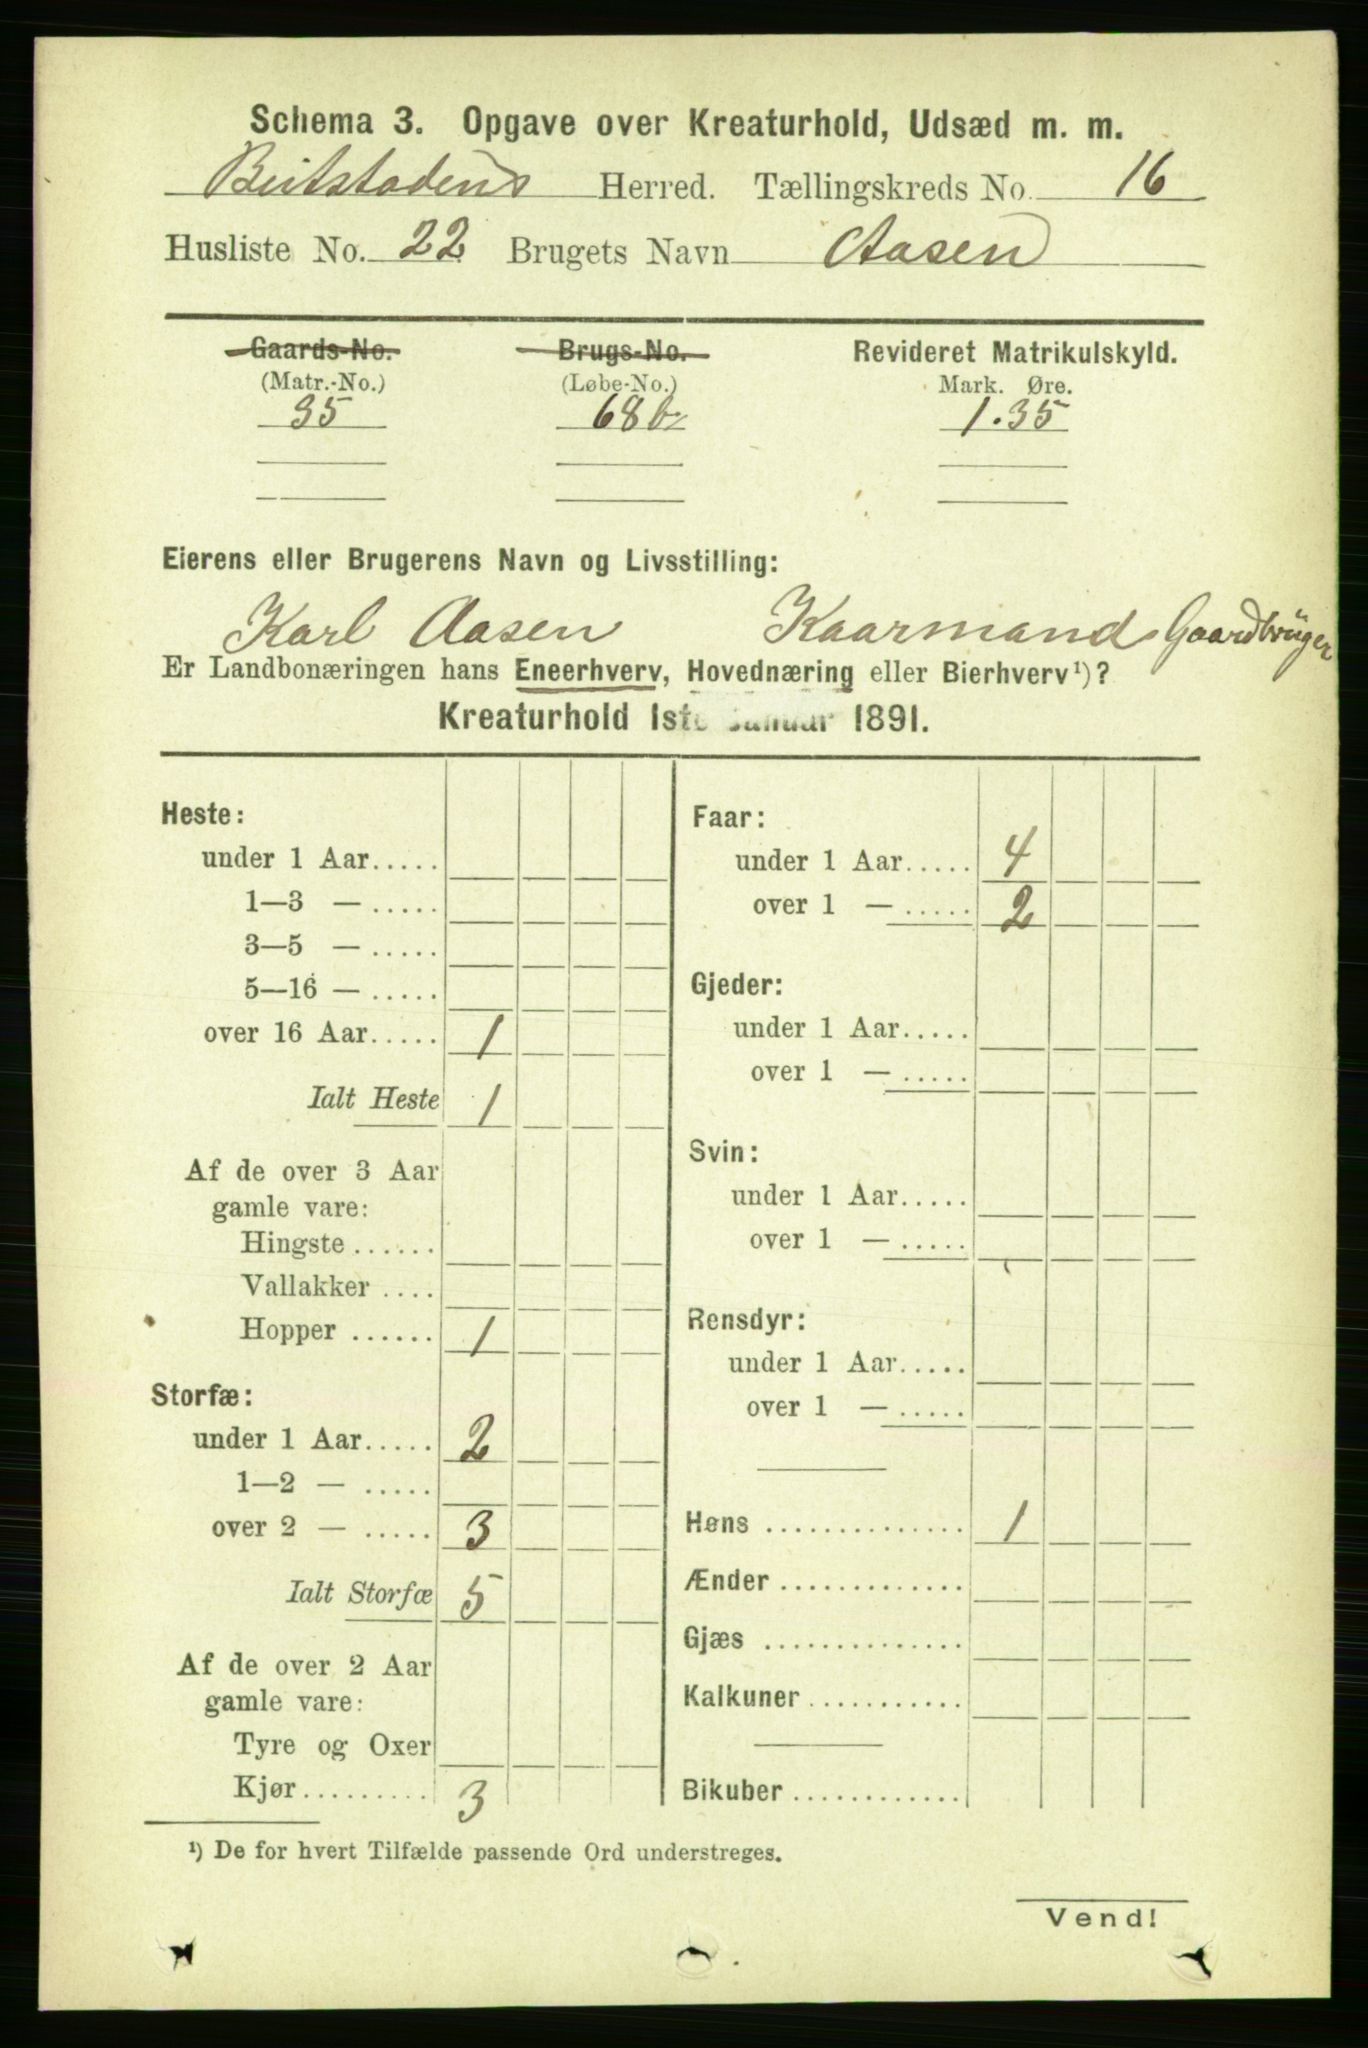 Schema 3. Opgave over Kreaturhold, Udsæd m. m.
Beitstadens Herred. Tællingskreds No. 16
Husliste No. 22 Brugets Navn Aasen
Gaards-No. Brugs-No. Revideret Matrikulskyld.
(Matr.-No.) (Løbe-No.) Mark. Øre.
35 68b 1.35
Eierens eller Brugerens Navn og Livsstilling:
Karl Aasen Kaarmand Gaardbrüger
Er Landbonæringen hans Eneerhverv, Hovednæring eller Bierhverv¹)?
Kreaturhold 1ste Januar 1891.
Heste:
under 1 Aar.....
1—3 — .....
3—5 — .....
5—16 — .....
over 16 Aar..... 1
Ialt Heste 1
Af de over 3 Aar
gamle vare:
Hingste ......
Vallakker ....
Hopper ...... 1
Storfæ:
under 1 Aar..... 2
1—2 — .....
over 2 — ..... 3
Ialt Storfæ 5
Af de over 2 Aar
gamle vare:
Tyre og Oxer
Kjør......... 3
Faar:
under 1 Aar..... 4
over 1 — ..... 2
Gjeder:
under 1 Aar.....
over 1 — .....
Svin:
under 1 Aar.....
over 1 — .....
Rensdyr:
under 1 Aar.....
over 1 — .....
Høns .............. 1
Ænder .............
Gjæs ..............
Kalkuner ...........
Bikuber ............
¹) De for hvert Tilfælde passende Ord understreges.
Vend!